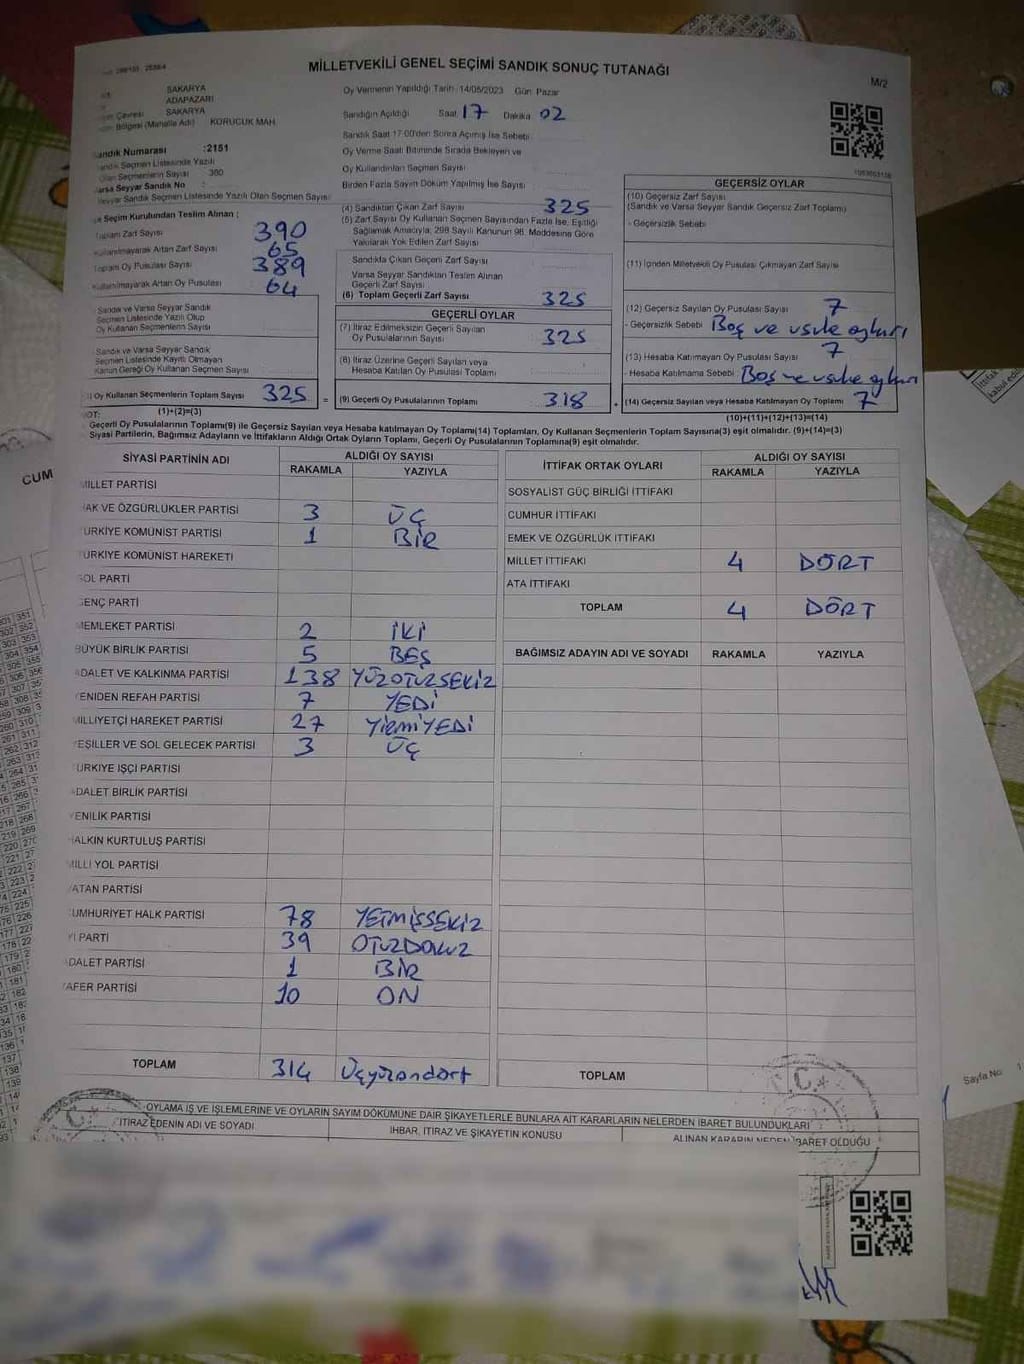 MİLLETVEKİLİ GENEL SEÇİMİ SANDIK SONUÇ TUTANAĞI
M/2
SAKARYA
ADAPAZARI
Çevresi SAKARYA
Bölgesi (Mahalle Adı) KORUCUK MAH.
Oy Vermenin Yapıldığı Tarih: 14/05/2023 Gün: Pazar
Sandığın Açıldığı Saat: 17 Dakika 02
Sandık Saat 17:00'den Sonra Açılmış İse Sebebi
Oy Verme Saati Bitiminde Sırada Bekleyen ve
Oy Kullandırılan Seçmen Sayısı
Birden Fazla Sayım Döküm Yapılmış İse Sayısı
Sandık Numarası :2151
Sandık Seçmen Listesinde Yazılı
Olan Seçmenlerin Sayısı 380
Varsa Seyyar Sandık No :
Seyyar Sandık Seçmen Listesinde Yazılı Olan Seçmen Sayısı
Seçim Kurulundan Teslim Alınan ;
Toplam Zarf Sayısı 390
Kullanılmayarak Artan Zarf Sayısı 65
Toplam Oy Pusulası Sayısı 389
Kullanılmayarak Artan Oy Pusulası 64
Sandık ve Varsa Seyyar Sandık
Seçmen Listesinde Yazılı Olup
Oy Kullanan Seçmenlerin Sayısı
Sandık ve Varsa Seyyar Sandık
Seçmen Listesinde Kayıtlı Olmayan
Kanun Gereği Oy Kullanan Seçmen Sayısı
Oy Kullanan Seçmenlerin Toplam Sayısı 325
(1)+(2)=(3)
(4) Sandıktan Çıkan Zarf Sayısı 325
(5) Zarf Sayısı Oy Kullanan Seçmen Sayısından Fazla İse, Eşitliği
Sağlamak Amacıyla; 298 Sayılı Kanunun 98. Maddesine Göre
Yakılarak Yok Edilen Zarf Sayısı
Sandıkta Çıkan Geçerli Zarf Sayısı
Varsa Seyyar Sandıktan Teslim Alınan
Geçerli Zarf Sayısı
(6) Toplam Geçerli Zarf Sayısı 325
GEÇERLİ OYLAR
(7) İtiraz Edilmeksizin Geçerli Sayılan
Oy Pusulalarının Sayısı 325
(8) İtiraz Üzerine Geçerli Sayılan veya
Hesaba Katılan Oy Pusulası Toplamı
= (9) Geçerli Oy Pusulalarının Toplamı 318
GEÇERSİZ OYLAR
(10) Geçersiz Zarf Sayısı
(Sandık ve Varsa Seyyar Sandık Geçersiz Zarf Toplamı)
- Geçersizlik Sebebi
(11) İçinden Milletvekili Oy Pusulası Çıkmayan Zarf Sayısı
(12) Geçersiz Sayılan Oy Pusulası Sayısı 7
- Geçersizlik Sebebi Boş ve
(13) Hesaba Katılmayan Oy Pusulası Sayısı 7
- Hesaba Katılmama Sebebi: Boş ve
+ (14) Geçersiz Sayılan veya Hesaba Katılmayan Oy Toplamı 7
(10)+(11)+(12)+(13)=(14)
NOT:
Geçerli Oy Pusulalarının Toplamı(9) ile Geçersiz Sayılan veya Hesaba katılmayan Oy Toplamı(14) Toplamları, Oy Kullanan Seçmenlerin Toplam Sayısına(3) eşit olmalıdır. (9)+(14)=(3)
Siyasi Partilerin, Bağımsız Adayların ve İttifakların Aldığı Ortak Oyların Toplamı, Geçerli Oy Pusulalarının Toplamına(9) eşit olmalıdır.
SİYASİ PARTİNİN ADI ALDIĞI OY SAYISI
RAKAMLA YAZIYLA
MİLLET PARTİSİ
HAK VE ÖZGÜRLÜKLER PARTİSİ 3 ÜÇ
TÜRKİYE KOMÜNİST PARTİSİ 1 BİR
TÜRKİYE KOMÜNİST HAREKETİ
SOL PARTİ
GENÇ PARTİ
MEMLEKET PARTİSİ 2 İKİ
BÜYÜK BİRLİK PARTİSİ 5 BEŞ
ADALET VE KALKINMA PARTİSİ 138 YÜZOTUZSEKİZ
YENİDEN REFAH PARTİSİ 7 YEDİ
MİLLİYETÇİ HAREKET PARTİSİ 27 YİRMİYEDİ
YEŞİLLER VE SOL GELECEK PARTİSİ 3 ÜÇ
TÜRKİYE İŞÇİ PARTİSİ
ADALET BİRLİK PARTİSİ
YENİLİK PARTİSİ
HALKIN KURTULUŞ PARTİSİ
MİLLİ YOL PARTİSİ
VATAN PARTİSİ
CUMHURİYET HALK PARTİSİ 78 YETMİŞSEKİZ
İYİ PARTİ 39 OTUZDOKUZ
ADALET PARTİSİ 1 BİR
ZAFER PARTİSİ 10 ON
TOPLAM 314 Üçyüzondört
İTTİFAK ORTAK OYLARI ALDIĞI OY SAYISI
RAKAMLA YAZIYLA
SOSYALİST GÜÇ BİRLİĞİ İTTİFAKI
CUMHUR İTTİFAKI
EMEK VE ÖZGÜRLÜK İTTİFAKI
MİLLET İTTİFAKI 4 DÖRT
ATA İTTİFAKI
TOPLAM 4 DÖRT
BAĞIMSIZ ADAYIN ADI VE SOYADI RAKAMLA YAZIYLA
TOPLAM
OYLAMA İŞ VE İŞLEMLERİNE VE OYLARIN SAYIM DÖKÜMÜNE DAİR ŞİKAYETLERLE BUNLARA AİT KARARLARIN NELERDEN İBARET BULUNDUKLARI
İTİRAZ EDENİN ADI VE SOYADI İHBAR, İTİRAZ VE ŞİKAYETİN KONUSU ALINAN KARARIN NEDEN İBARET OLDUĞU
Sayfa No: 1
CUM
T.C.